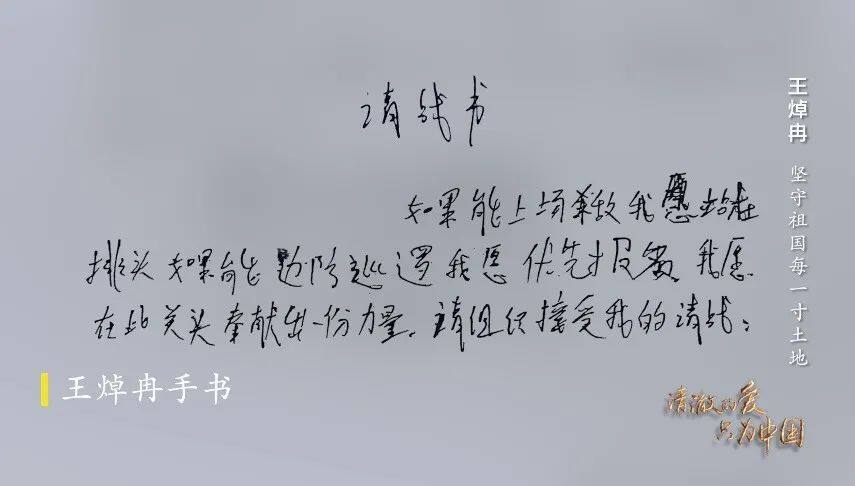 请战书
如果能上场杀敌我愿站在
排头如果能边防巡逻我愿优先报名 我愿
在此关头奉献出一份力量。请组织接受我的请战：
王焯冉手书
王焯冉 坚守祖国每一寸土地
清澈的爱
只为中国